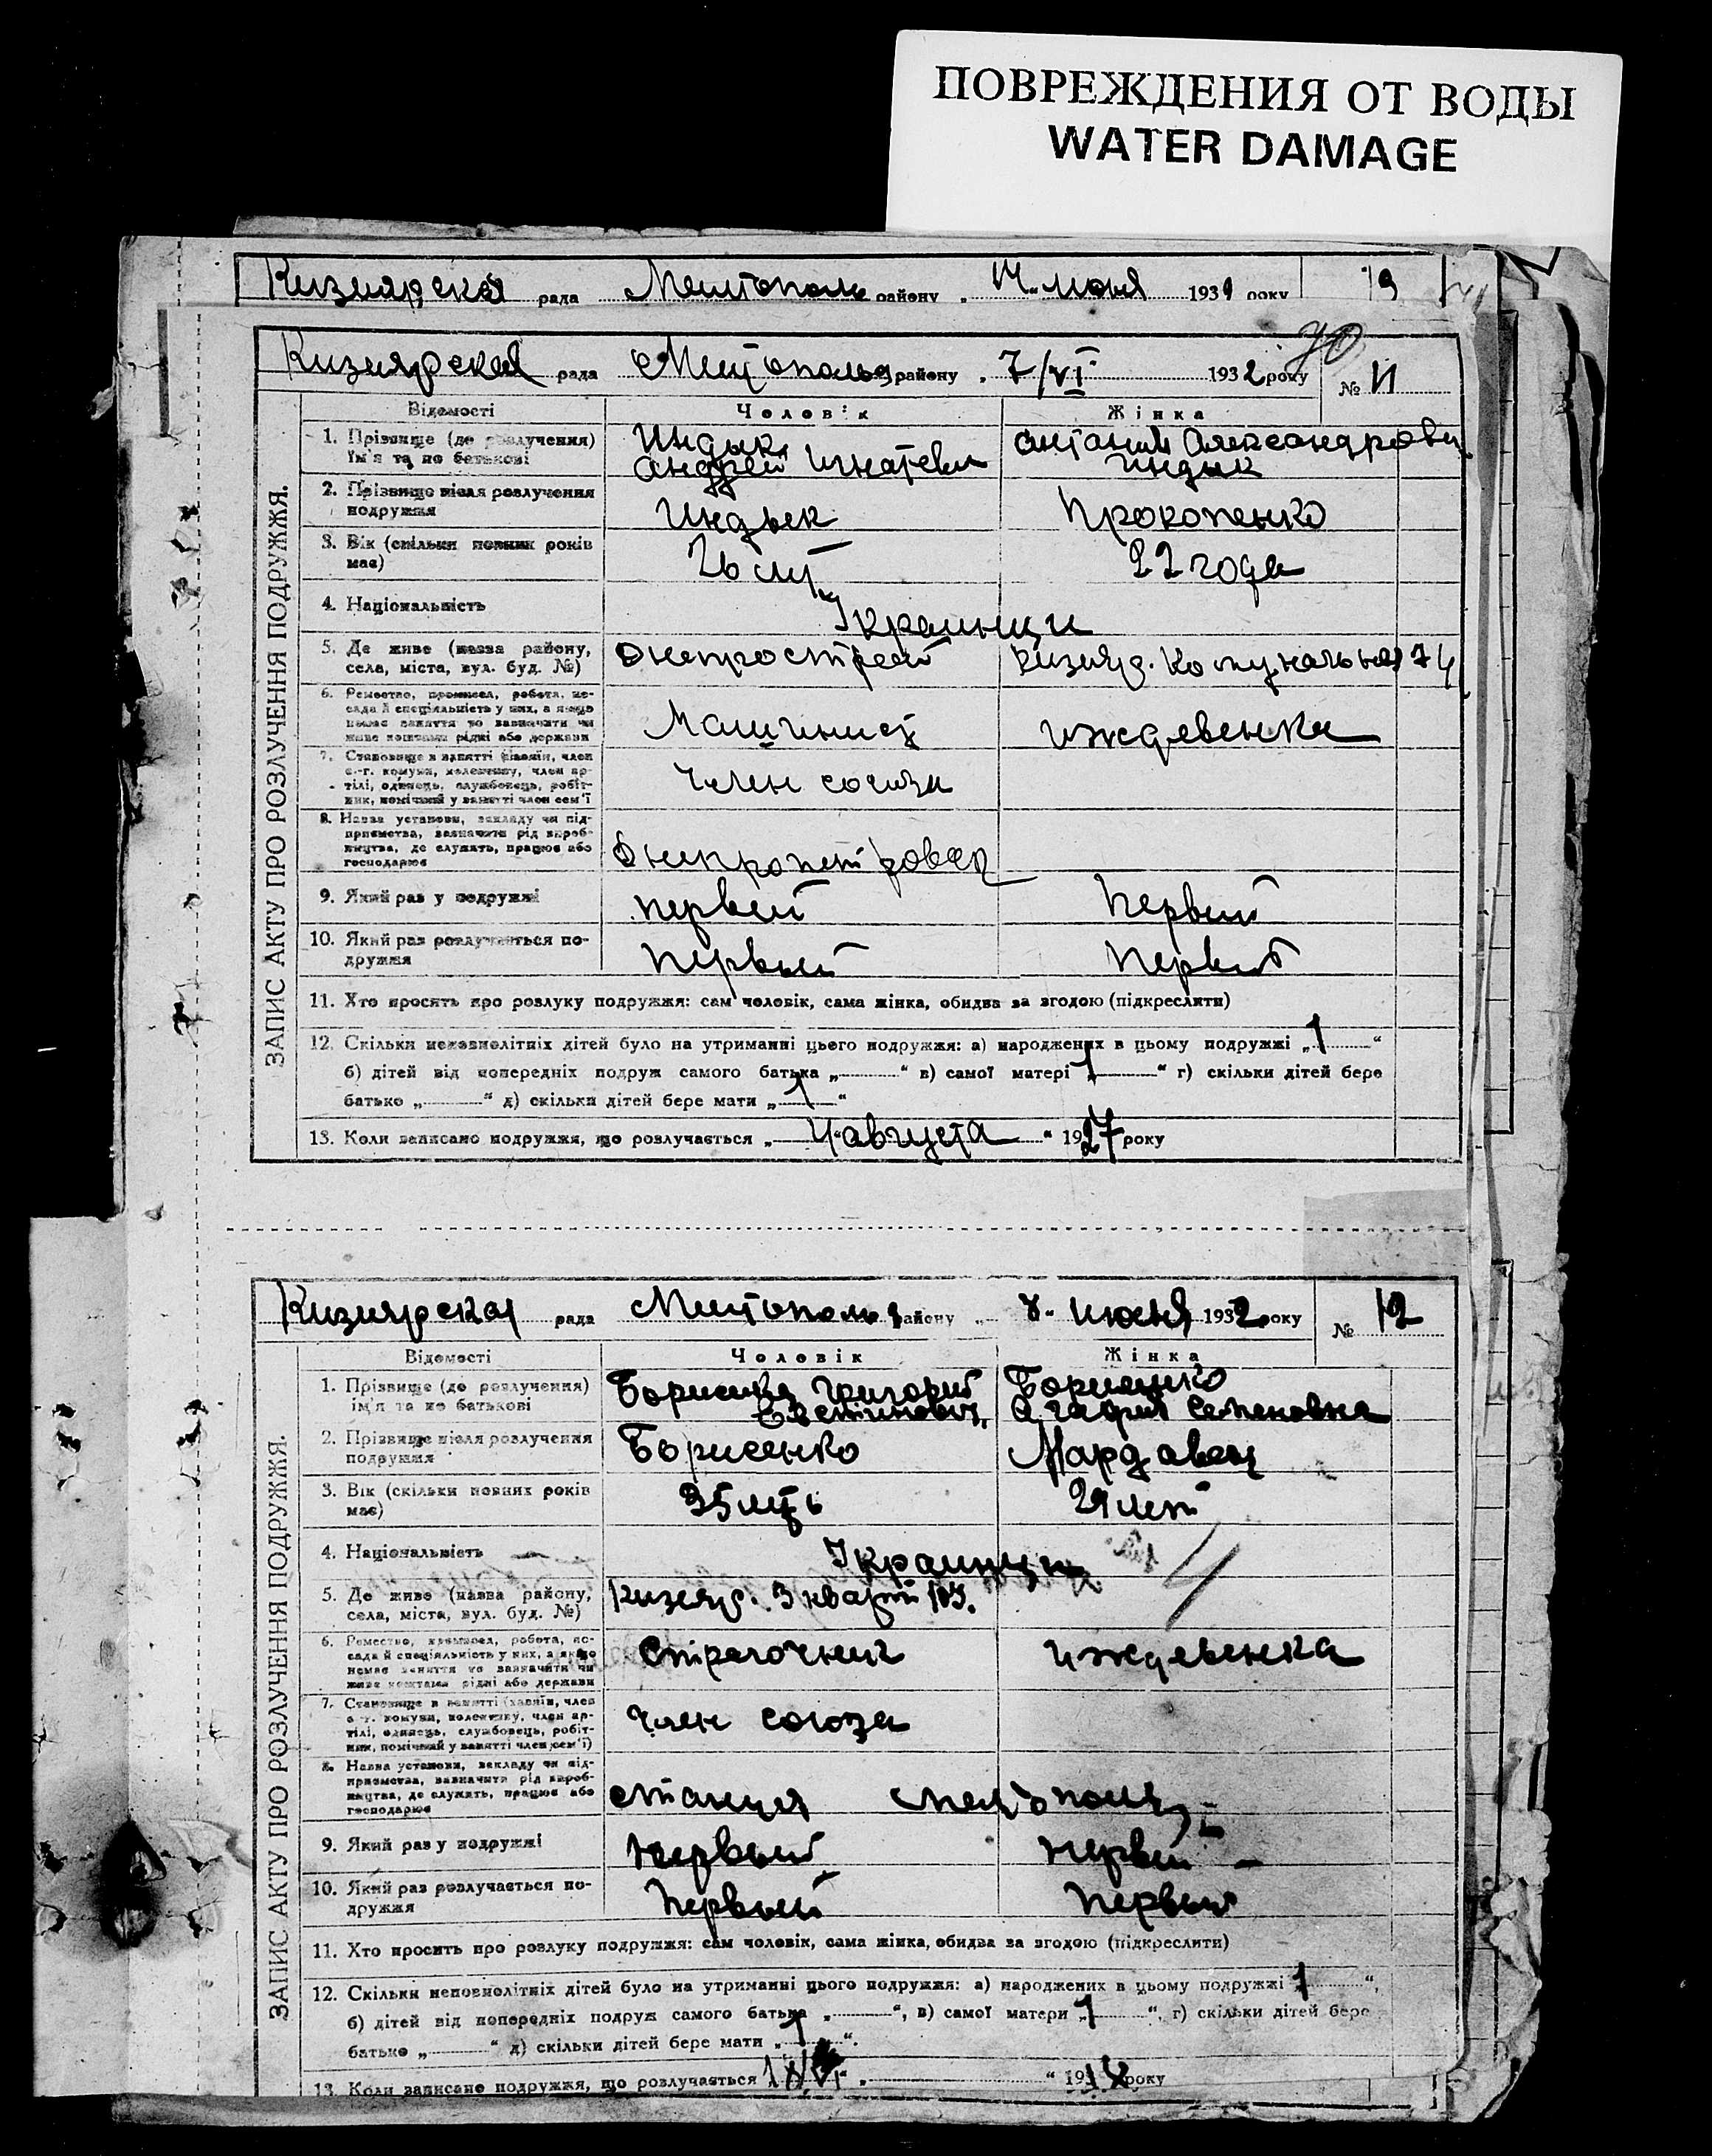 ПОВРЕЖДЕНИЯ ОТ ВОДЫ
WATER DAMAGE
Кизиярская рада району 1931 року 19
70
Кизиярская рада району 7/VI 1932 року № 11
ЗАПИС АКТУ ПРО РОЗЛУЧЕННЯ ПОДРУЖЖЯ.
Відомості Чоловік Жінка
1. Прізвище (до розлучення) ім'я та по батькові Индык Андрей Игнатевич Александровн Индык
2. Прізвище після розлучення подружжя Индык Прокопенко
3. Вік (скільки повних років має) 26 лет 22 года
4. Національність Украинци
5. Де живе (назва району, села, міста, вул. буд. №) Днепрострой Кизияр. Комунальная 74
6. Ремество, промисел, робота, посада й спеціяльність у них, а якщо немає заняття то зазначити чи живе коштами рідні або держави Машинист иждевенка
7. Становище в занятті (хазяїн, член с.-г. комуни, колективу, член артілі, одинець, службовець, робітник, помічний у занятті член сем'ї Член союза
8. Назва установи, закладу чи підприємства, зазначити рід виробництва, де служать, працює або господарює
9. Який раз у подружжі первый Первый
10. Який раз розлучається подружжя Первый Первый
11. Хто просить про розлуку подружжя: сам чоловік, сама жінка, обидва за згодою (підкреслити)
12. Скільки неповнолітніх дітей було на утриманні цього подружжя: а) народжених в цьому подружжі „ 1 “
б) дітей від попередніх подруж самого батька „ “ в) самої матері „ 1 “ г) скільки дітей бере
батько „ “ д) скільки дітей бере мати „ 1 “
13. Коли записано подружжя, що розлучається „ 4 августа “ 1927 року
Кизиярская рада району июня 1932 року № 12
ЗАПИС АКТУ ПРО РОЗЛУЧЕННЯ ПОДРУЖЖЯ.
Відомості Чоловік Жінка
1. Прізвище (до розлучення) ім'я та по батькові Григорий Борисенко Агафия Семеновна
2. Прізвище після розлучення подружжя Борисенко
3. Вік (скільки повних років має) 35 29 лет
4. Національність Украинци
5. Де живе (назва району, села, міста, вул. буд. №) Кизияр. 3 кварт
6. Ремество, промисел, робота, посада й спеціяльність у них, а якщо немає заняття то зазначити чи живе коштами рідні або держави Стрелочник иждевенка
7. Становище в занятті (хазяїн, член с.-г. комуни, колективу, член артілі, одинець, службовець, робітник, помічний у занятті член сем'ї) Член союза
8. Назва установи, закладу чи підприємства, зазначити рід виробництва, де служать, працює або господарює станция
9. Який раз у подружжі Первый Первый
10. Який раз розлучається подружжя Первый Первый
11. Хто просить про розлуку подружжя: сам чоловік, сама жінка, обидва за згодою (підкреслити)
12. Скільки неповнолітніх дітей було на утриманні цього подружжя: а) народжених в цьому подружжі 1 “,
б) дітей від попередніх подруж самого батька „ “, в) самої матери „ 1 “, г) скільки дітей бере
батько „ “ д) скільки дітей бере мати „ 1 “.
13. Коли записано подружжя, що розлучається року